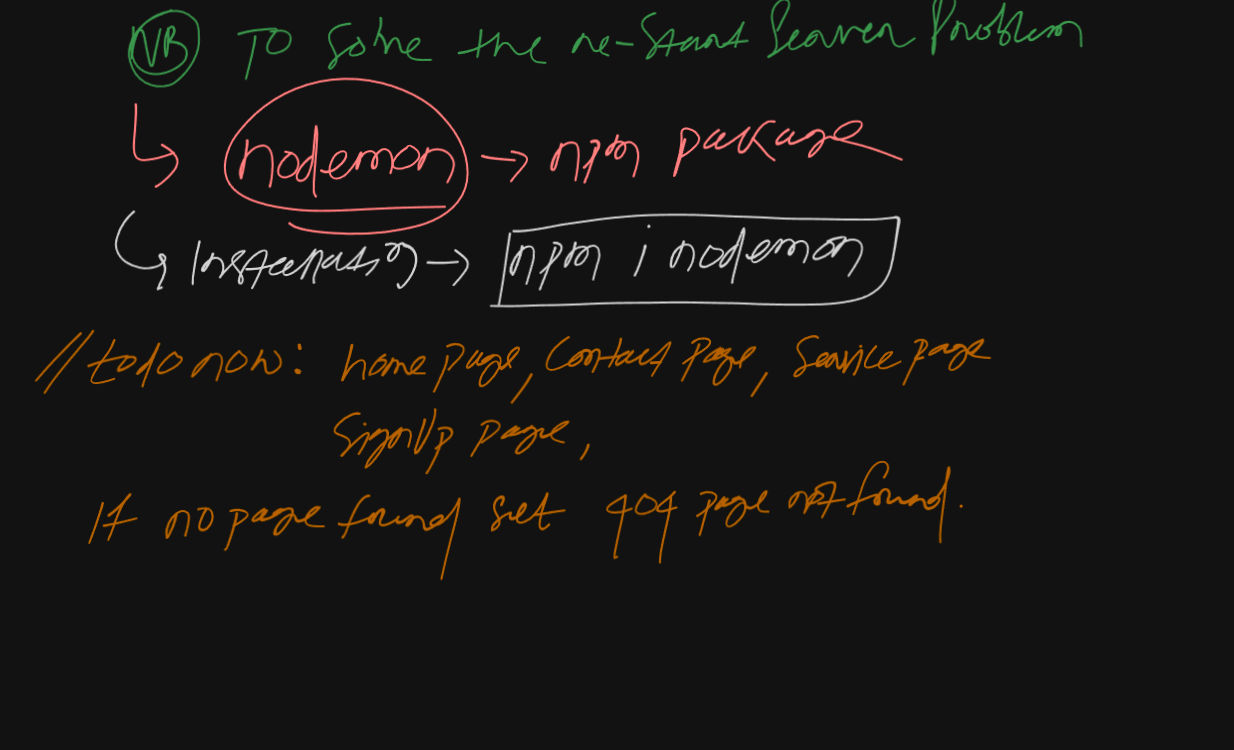 NB To Solve the re-Start Server Problem
↳ nodemon → npm package
↳ Installation → npm i nodemon
//todo now: home page, Contact Page, Service page
SignUp page,
If no page found set 404 page not found.